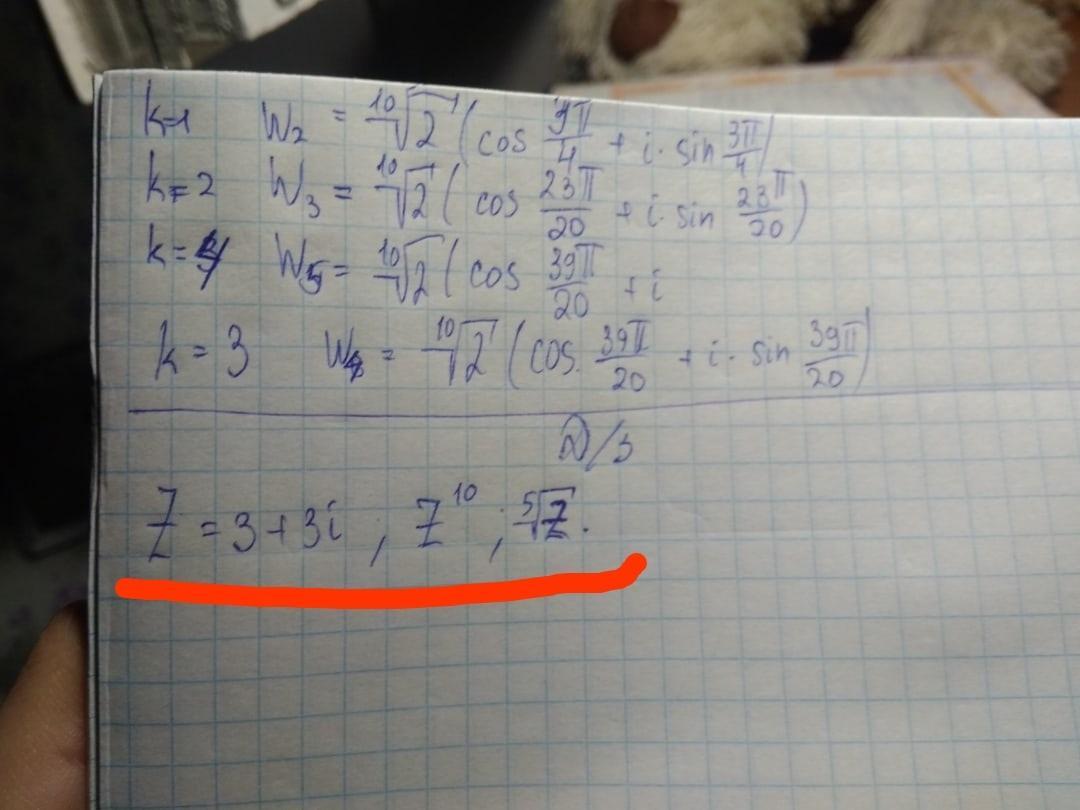 k=1 W₂ = ¹⁰√2 (cos 3π/4 + i· sin 3π/4)
k=2 W₃ = ¹⁰√2 (cos 23π/20 + i· sin 23π/20)
k=4 W₅ = ¹⁰√2 (cos 39π/20 + i
k=3 W₄ = ¹⁰√2 (cos. 39π/20 + i· sin 39π/20)
D/З
Z = 3+3i , Z¹⁰ ; ⁵√Z.